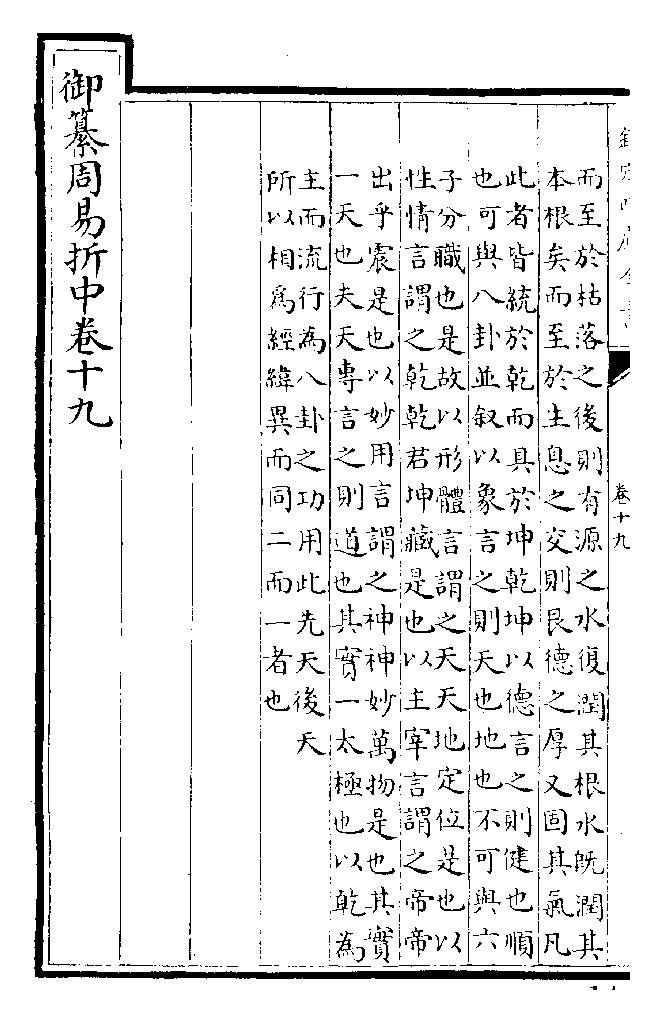 欽定四庫全書
卷十九
而至於枯落之後則有源之水復潤其根水旣潤其
本根矣而至於生息之交則艮德之厚又固其氣凡
此者皆統於乾而具於坤乾坤以德言之則健也順
也可與八卦並叙以象言之則天也地也不可與六
子分職也是故以形體言謂之天天地定位是也以
性情言謂之乾乾君坤藏是也以主宰言謂之帝帝
出乎震是也以妙用言謂之神神妙萬物是也其實
一天也夫天專言之則道也其實一太極也以乾為
主而流行為八卦之功用此先天後天
所以相爲經緯異而同二而一者也
御纂周易折中卷十九